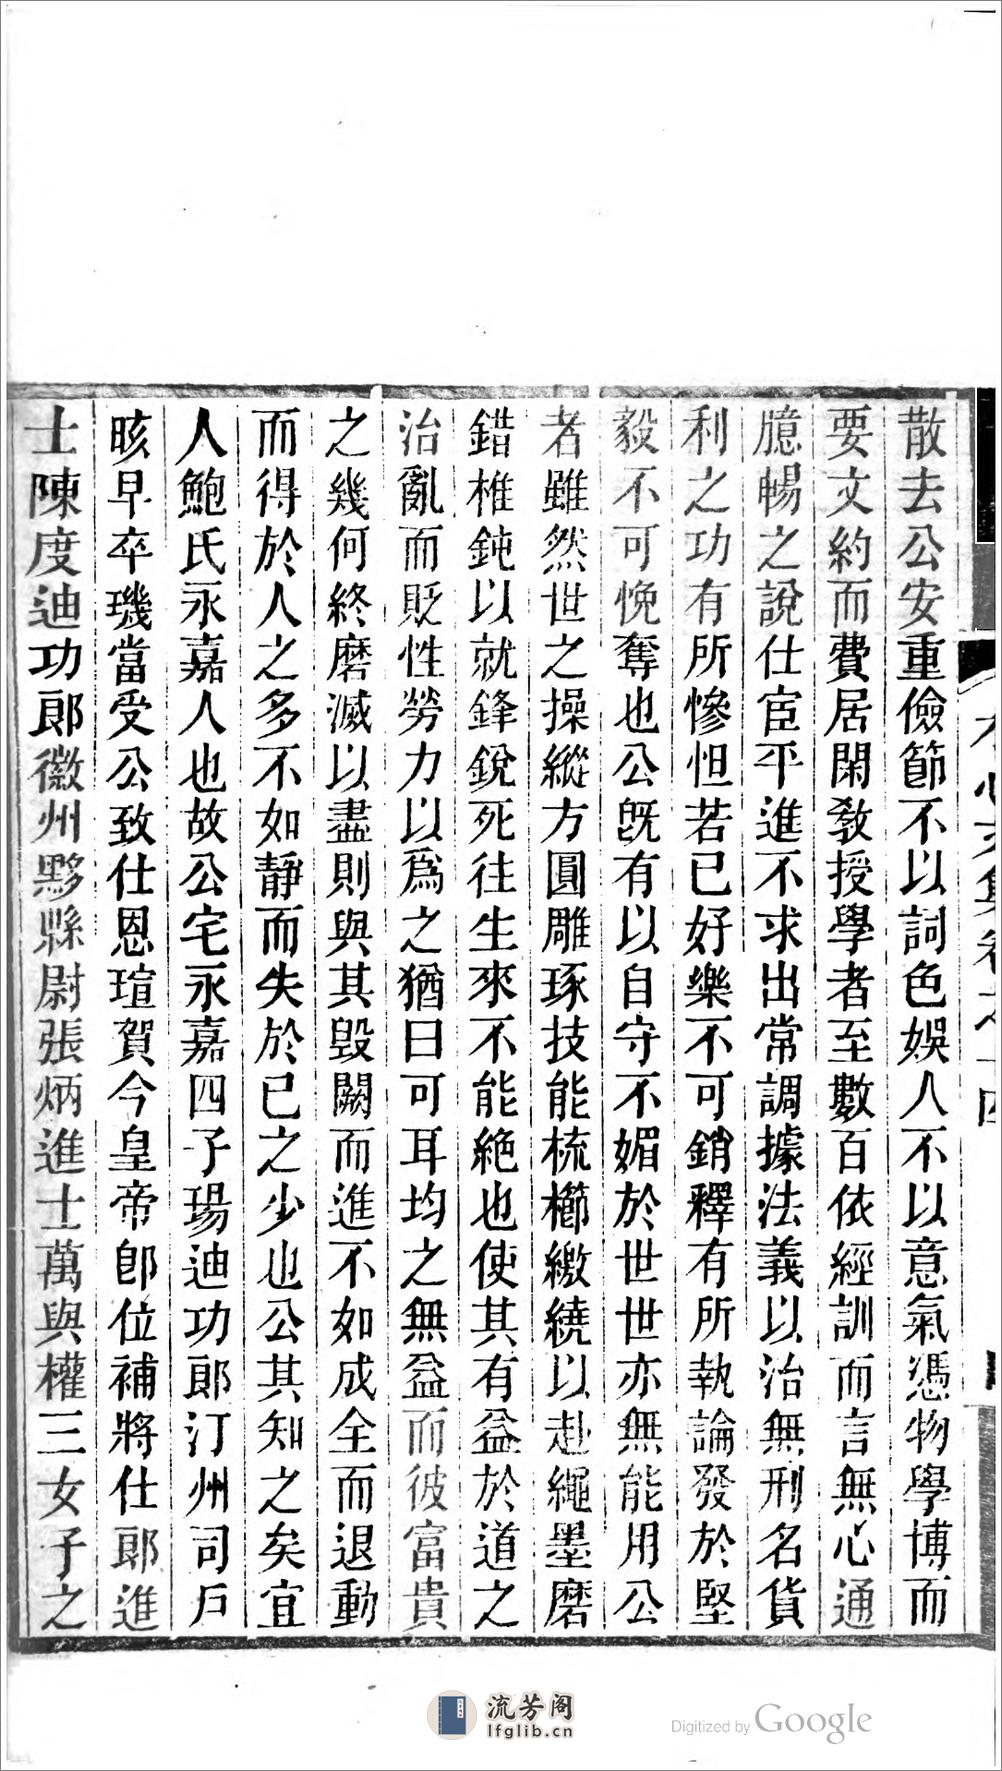 散去公安重儉節不以詞色娛人不以意氣憑物學博而
要文約而費居閑敎授學者至數百依經訓而言無心通
臆暢之說仕宦平進不求出常調據法義以治無刑名貨
利之功有所慘怛若已好樂不可銷釋有所執論發於堅
毅不可悗奪也公旣有以自守不媚於世世亦無能用公
者雖然世之操縱方圓雕琢技能梳櫛繳繞以赴繩墨磨
錯椎鈍以就鋒銳死往生來不能絶也使其有益於道之
治亂而貶性勞力以爲之猶曰可耳均之無益而彼富貴
之幾何終磨滅以盡則與其毀闕而進不如成全而退動
而得於人之多不如靜而失於已之少也公其知之矣宜
人鮑氏永嘉人也故公宅永嘉四子瑒迪功郞汀州司戶
晐早卒璣當受公致仕恩瑄賀今皇帝卽位補將仕郞進
士陳度迪功郞徽州黟縣尉張炳進士萬與權三女子之
水心文集卷之十四
流芳阁
lfglib.cn
Digitized by Google